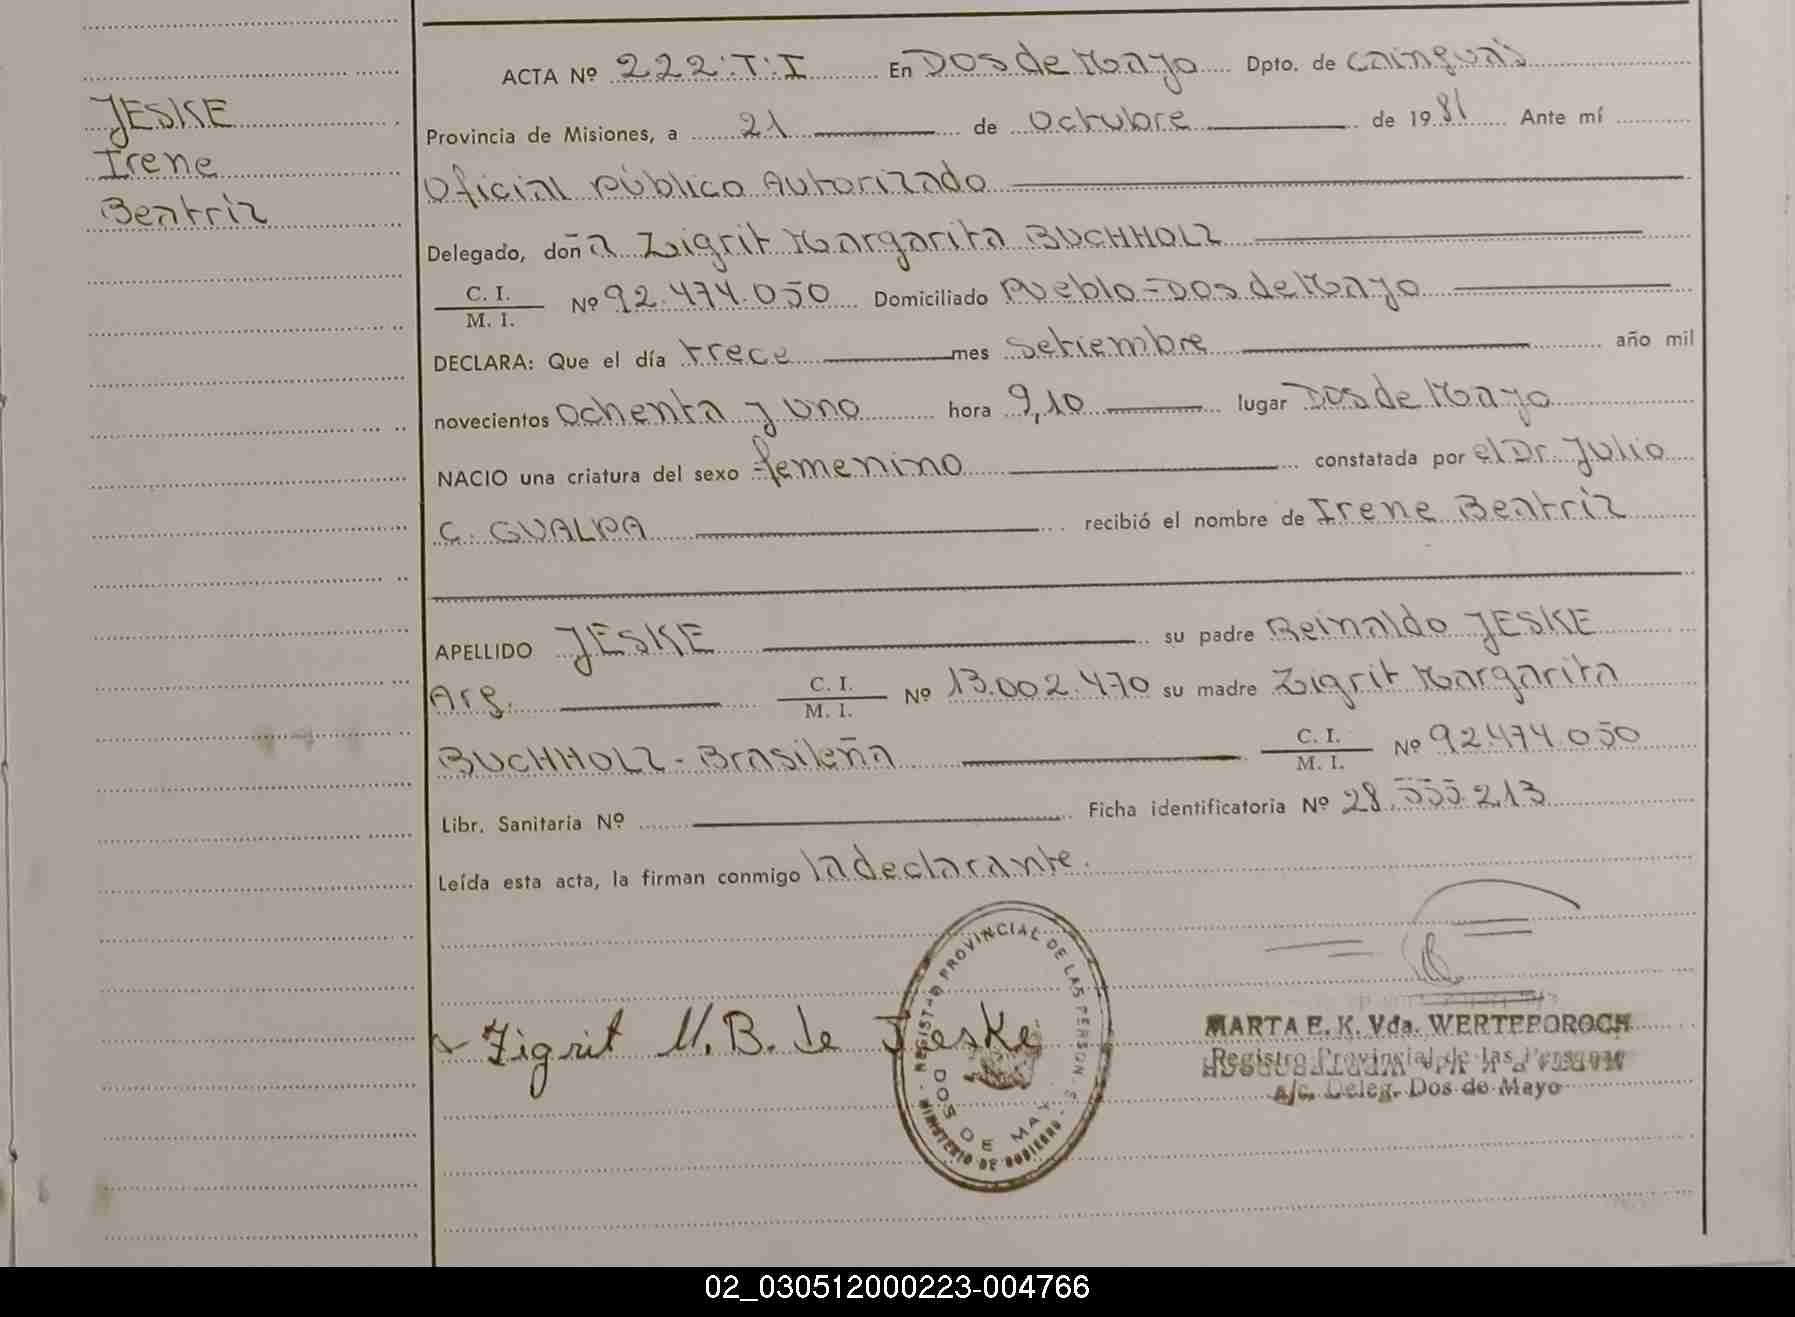 JESKE
Irene
Beatriz
ACTA Nº 222·T·I En Dos de Mayo Dpto. de Cainguás
Provincia de Misiones, a 21 de Octubre de 1981 Ante mí
Oficial Público Autorizado
Delegado, doña Zigrit Margarita BUCHHOLZ
C. I.
M. I. Nº 92.474.050 Domiciliado Pueblo=Dos de Mayo
DECLARA: Que el día trece mes Setiembre año mil
novecientos ochenta y uno hora 9,10 lugar Dos de Mayo
NACIO una criatura del sexo =femenino constatada por el Dr. Julio
C. GUALPA recibió el nombre de Irene Beatriz
APELLIDO JESKE su padre Reinaldo JESKE
Arg. C. I. M. I. Nº 13.002.470 su madre Zigrit Margarita
BUCHHOLZ - Brasileña C. I. M. I. Nº 92.474.050
Libr. Sanitaria Nº Ficha identificatoria Nº 28.555.213
Leída esta acta, la firman conmigo la declarante.
Zigrit M. B. de Jeske
REGISTRO PROVINCIAL DE LAS PERSONAS
DOS DE MAYO
MINISTERIO DE GOBIERNO
MARTA E. K. Vda. WERTEPOROCH
Registro Provincial de las Personas
a/c. Deleg. Dos de Mayo
02_030512000223-004766